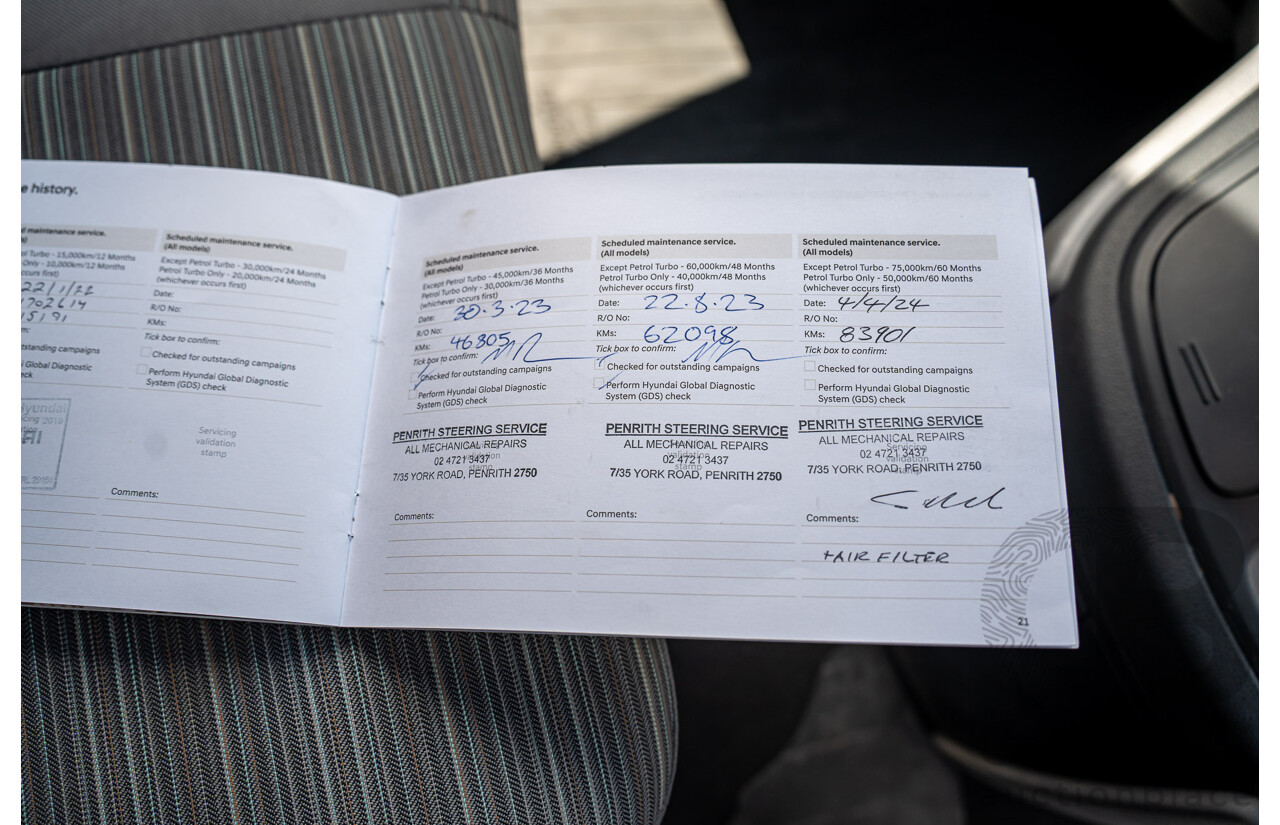 e history.
maintenance service.
Turbo - 15,000km/12 Months
Only - 10,000km/12 Months
occurs first)
22/1/22
702614
15191
outstanding campaigns
Hyundai Global Diagnostic
check
Hyundai
Scheduled maintenance service.
(All models)
Except Petrol Turbo - 30,000km/24 Months
Petrol Turbo Only - 20,000km/24 Months
(whichever occurs first)
Date:
R/O No:
KMs:
Tick box to confirm:
Checked for outstanding campaigns
Perform Hyundai Global Diagnostic
System (GDS) check
Servicing
validation
stamp
Comments:
Scheduled maintenance service.
(All models)
Except Petrol Turbo - 45,000km/36 Months
Petrol Turbo Only - 30,000km/36 Months
(whichever occurs first)
Date: 30.3.23
R/O No:
KMs: 46805
Tick box to confirm:
Checked for outstanding campaigns
Perform Hyundai Global Diagnostic
System (GDS) check
PENRITH STEERING SERVICE
ALL MECHANICAL REPAIRS
02 4721 3437
7/35 YORK ROAD, PENRITH 2750
Comments:
Scheduled maintenance service.
(All models)
Except Petrol Turbo - 60,000km/48 Months
Petrol Turbo Only - 40,000km/48 Months
(whichever occurs first)
Date: 22.8.23
R/O No:
KMs: 62098
Tick box to confirm:
Checked for outstanding campaigns
Perform Hyundai Global Diagnostic
System (GDS) check
PENRITH STEERING SERVICE
ALL MECHANICAL REPAIRS
02 4721 3437
7/35 YORK ROAD, PENRITH 2750
Comments:
Scheduled maintenance service.
(All models)
Except Petrol Turbo - 75,000km/60 Months
Petrol Turbo Only - 50,000km/60 Months
(whichever occurs first)
Date: 4/4/24
R/O No:
KMs: 83901
Tick box to confirm:
Checked for outstanding campaigns
Perform Hyundai Global Diagnostic
System (GDS) check
PENRITH STEERING SERVICE
ALL MECHANICAL REPAIRS
02 4721 3437
7/35 YORK ROAD, PENRITH 2750
Comments:
+AIR FILTER
21